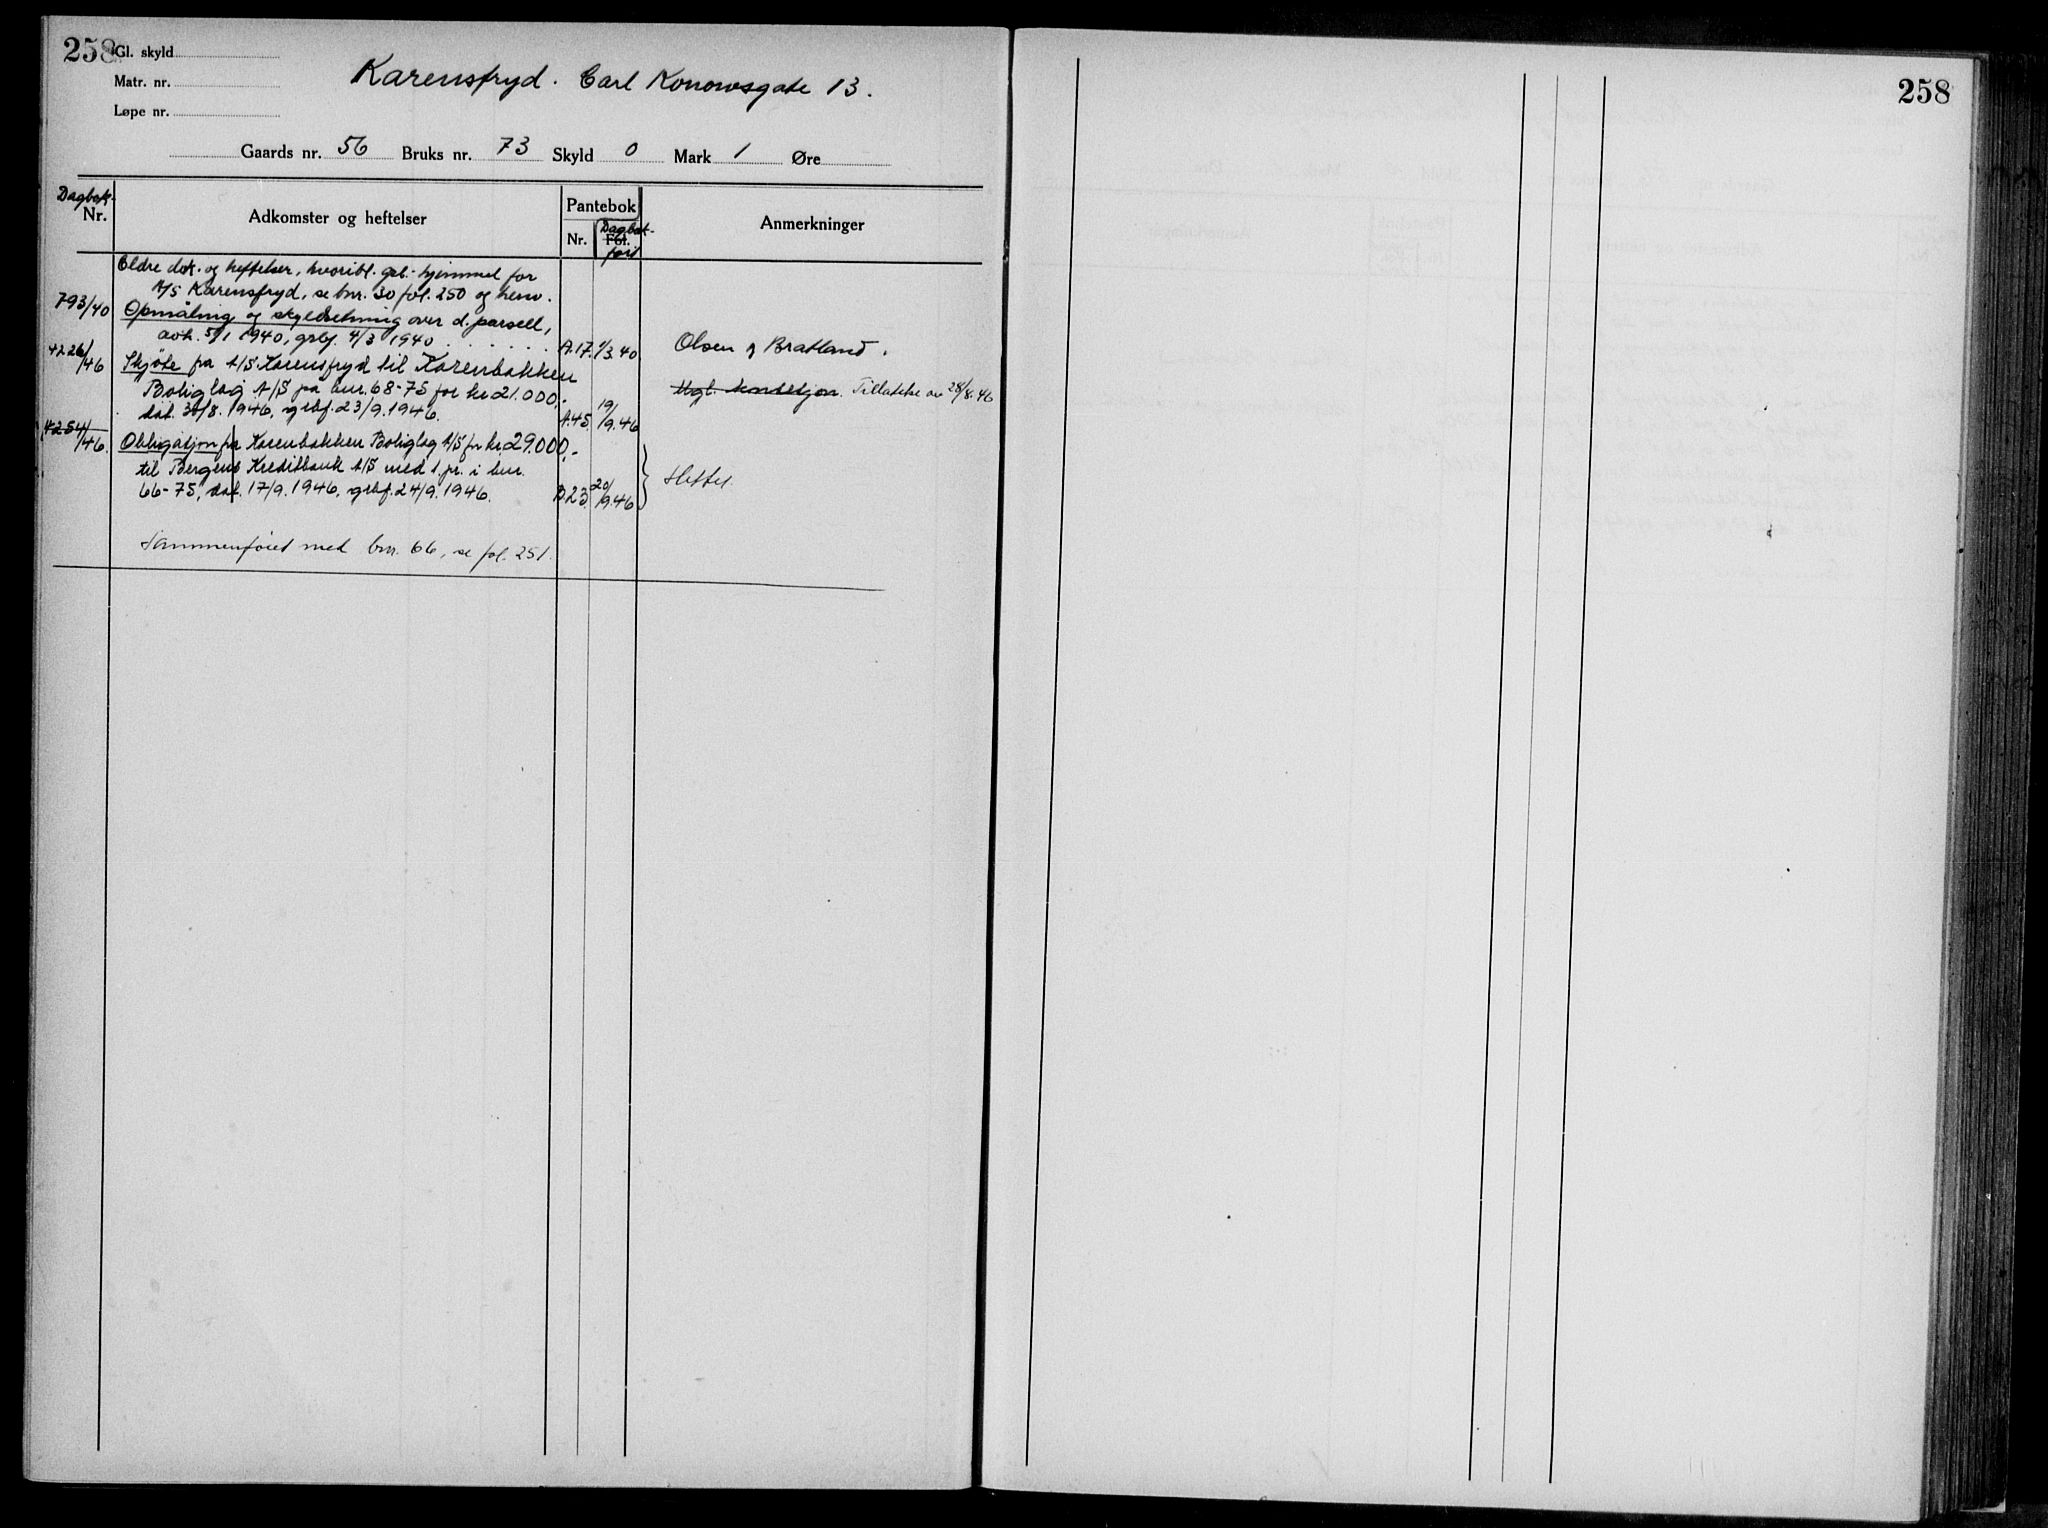 258
Gl. skyld
Matr. nr.
Løpe nr.
Karensfryd. Carl Konowsgate 13.
Gaards nr. 56 Bruks nr. 73 Skyld 0 Mark 1 Øre
Dagbok-
Nr.
Adkomster og heftelser
Pantebok
Nr.
Dagbok-
Fol.
ført
Anmerkninger
Eldre dok. og heftelser, hvoribl. grb.-hjemmel for
A/S Karensfryd, se bnr. 30 fol. 250 og henv.
793/40 Opmåling og skyldsetning over d. parsell,
avh. 5/1 1940, grbf. 4/3 1940 . . . . . . . A.17. 1/3.40 Olsen og Bratland.
4226/46 Skjøte fra A/S Karensfryd til Karenbakken
Boliglag A/S på bnr. 68-75 for kr 21.000,-
dat. 30/8. 1946, grbf. 23/9. 1946. A.45. 19/9.46 Mgl. konsesjon. Tillatelse av 28/8.46
4254/46 Obligasjon fra Karenbakken Boliglag A/S for kr. 29.000,-
til Bergens Kreditbank A/S med 1. pr. i bnr.
66-75, dat. 17/9. 1946, grbf. 24/9. 1946. B23. 20/9.46 Slettet.
Sammenføiet med bnr. 66, se fol. 251.
258